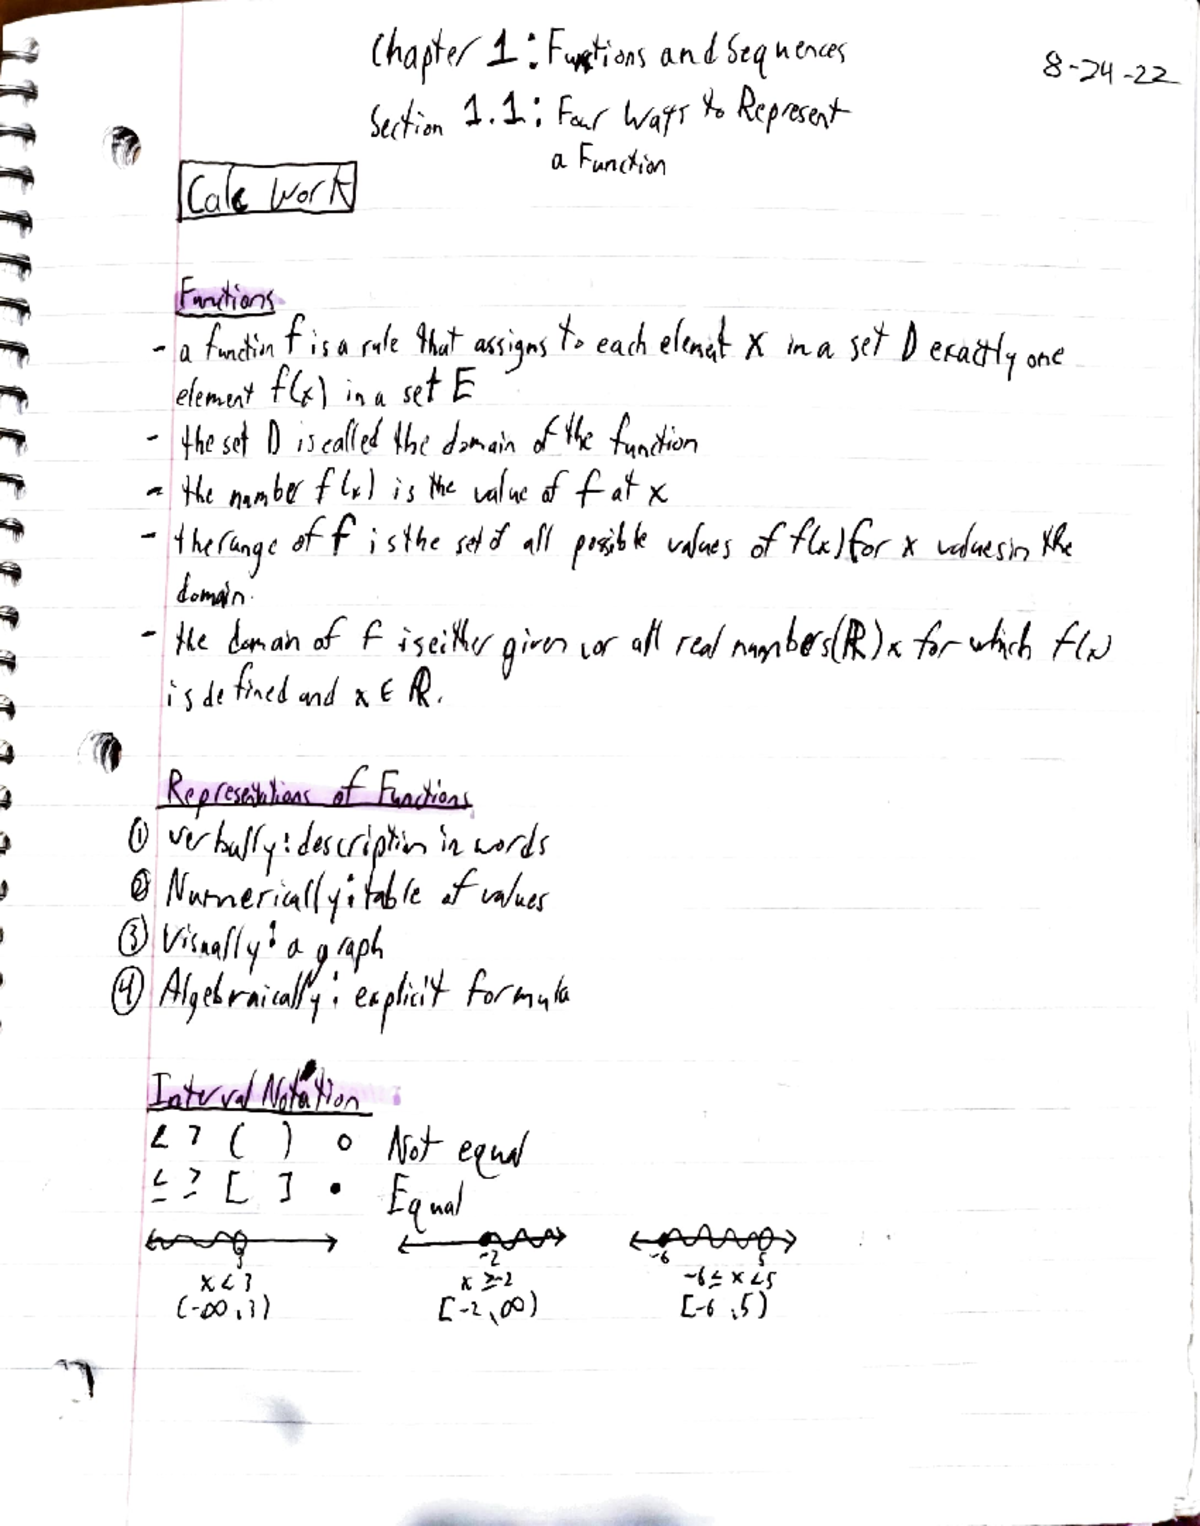 Chapter 1: Functions and Sequences
8-24-22
Section 1.1: Four Ways to Represent
a Function
Calc Work
Functions
- a function f is a rule that assigns to each element x in a set D exactly one
element f(x) in a set E
- the set D is called the domain of the function
- the number f(x) is the value of f at x
- the range of f is the set of all possible values of f(x) for x values in the
domain.
- the domain of f is either given or all real numbers (ℝ) x for which f(x)
is defined and x ∈ ℝ.
Representations of Functions
① verbally: description in words
② Numerically: table of values
③ Visually: a graph
④ Algebraically: explicit formula
Interval Notation
< > ( ) ○ Not equal
≤ ≥ [ ] • Equal
3 -2 -6 5
x < 3 x ≥ -2 -6 ≤ x < 5
(-∞, 3) [-2, ∞) [-6, 5)